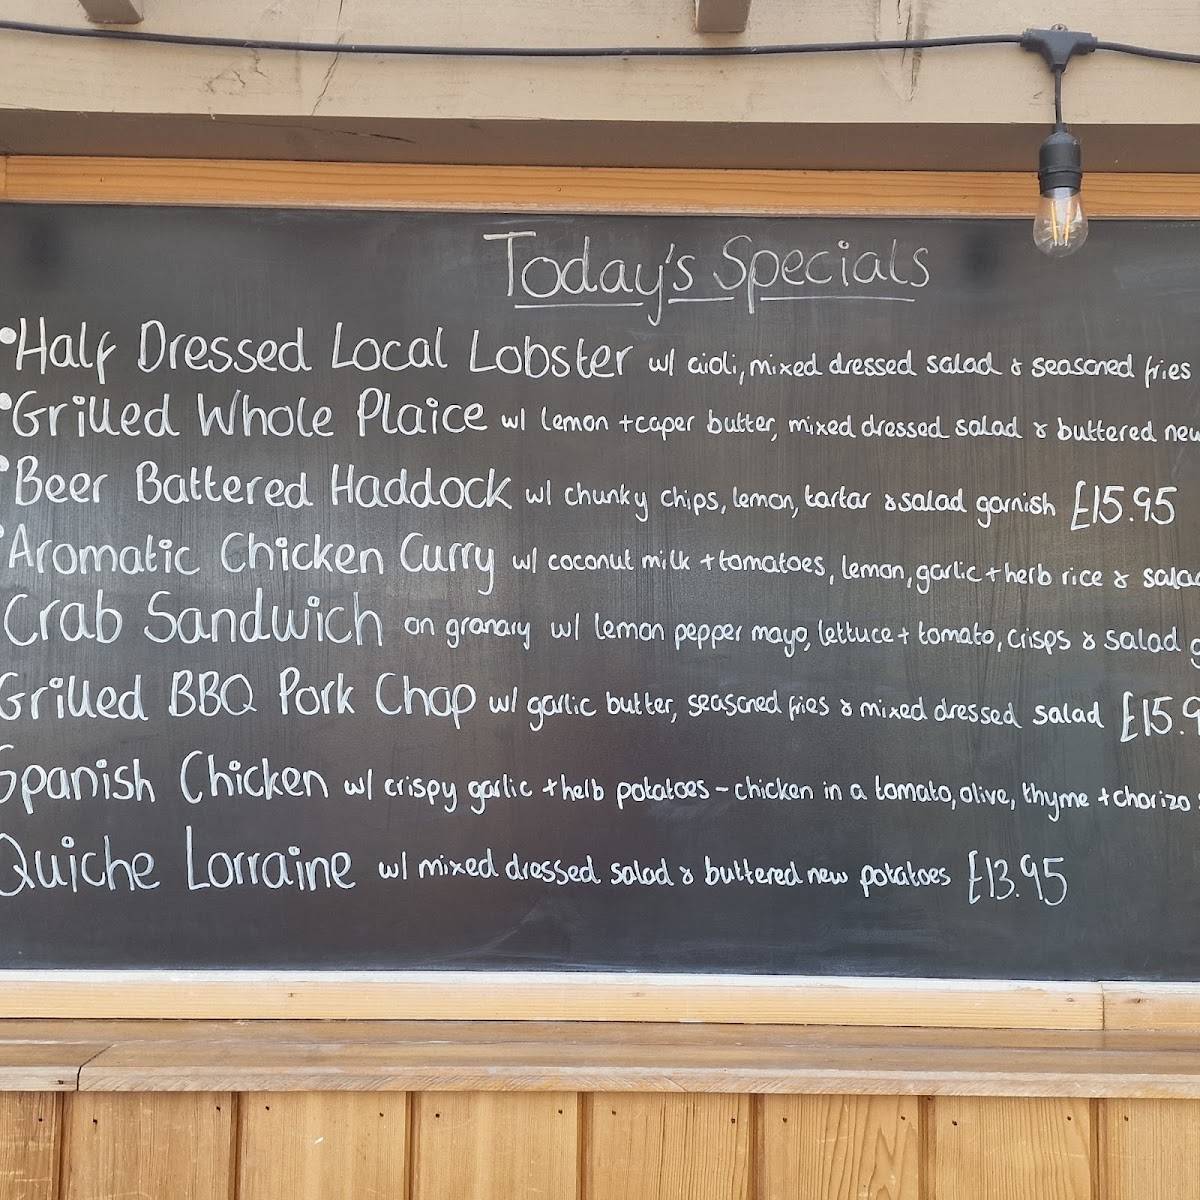 Today's Specials
•Half Dressed Local Lobster w/ aioli, mixed dressed salad & seasoned fries
•Grilled Whole Plaice w/ lemon + caper butter, mixed dressed salad & buttered new
•Beer Battered Haddock w/ chunky chips, lemon, tartar & salad garnish £15.95
•Aromatic Chicken Curry w/ coconut milk + tomatoes, lemon, garlic + herb rice & salad
Crab Sandwich on granary w/ lemon pepper mayo, lettuce + tomato, crisps & salad g
Grilled BBQ Pork Chop w/ garlic butter, seasoned fries & mixed dressed salad £15.9
Spanish Chicken w/ crispy garlic + herb potatoes - chicken in a tomato, olive, thyme + chorizo
Quiche Lorraine w/ mixed dressed salad & buttered new potatoes £13.95